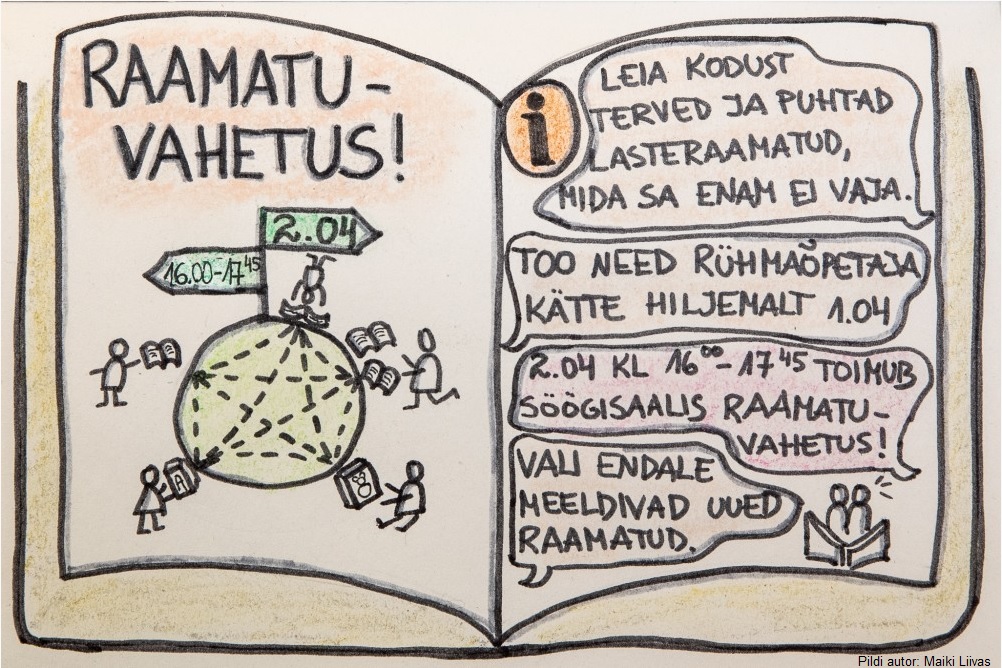 RAAMATU-
VAHETUS!
2.04
16.00-17⁴⁵
A
i
LEIA KODUST
TERVED JA PUHTAD
LASTERAAMATUD,
MIDA SA ENAM EI VAJA.
TOO NEED RÜHMAÕPETAJA
KÄTTE HILJEMALT 1.04
2.04 KL 16⁰⁰-17⁴⁵ TOIMUB
SÖÖGISAALIS RAAMATU-
VAHETUS!
VALI ENDALE
MEELDIVAD UUED
RAAMATUD.
Pildi autor: Maiki Liivas